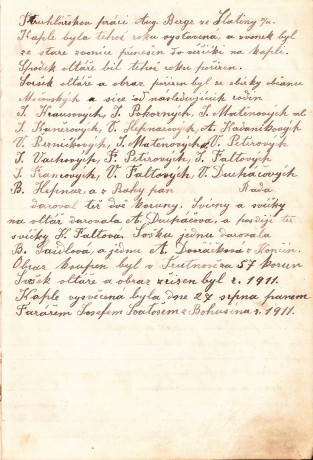 Truhlářskou práci Aug. Berge ze Slatiny n/u.
Kaple byla tehož roku vystavená, a zvonek byl
ze staré zvonice přenešen do věžičky na kaple.
Spodek oltáře bil tehož roku pořízen.
Svršek oltáře a obraz pořízen byl ze sbírky občanů
a sice od následujících rodin
J. Krausových, J. Pokorných, J. Matěnových ml.
J. Kanerových, V. Hepnarových, A. Kavánkových
V. Řezníkových, J. Matěnových, V. Peterových
J. Vachových, F. Peterových, J. Faltových
J. Francových, V. Faltových, V. Duchácových
B. Hepnar, a z Prahy pán Rada
daroval též dvě koruny. Svícny a svíčky
na oltář darovala A. Duchácova, a později též
svíčky K. Faltová. Sošku jedna darovala
B. Gaidlová, a jednu A. Dvořáčková z Končin.
Obraz koupen byl v Trutnově za 57 korun
Svršek oltáře a obraz zřízen byl r. 1911.
Kaple vysvěcená byla dne 27 srpna panem
Farářem Josefem z Bohuslna r. 1911.